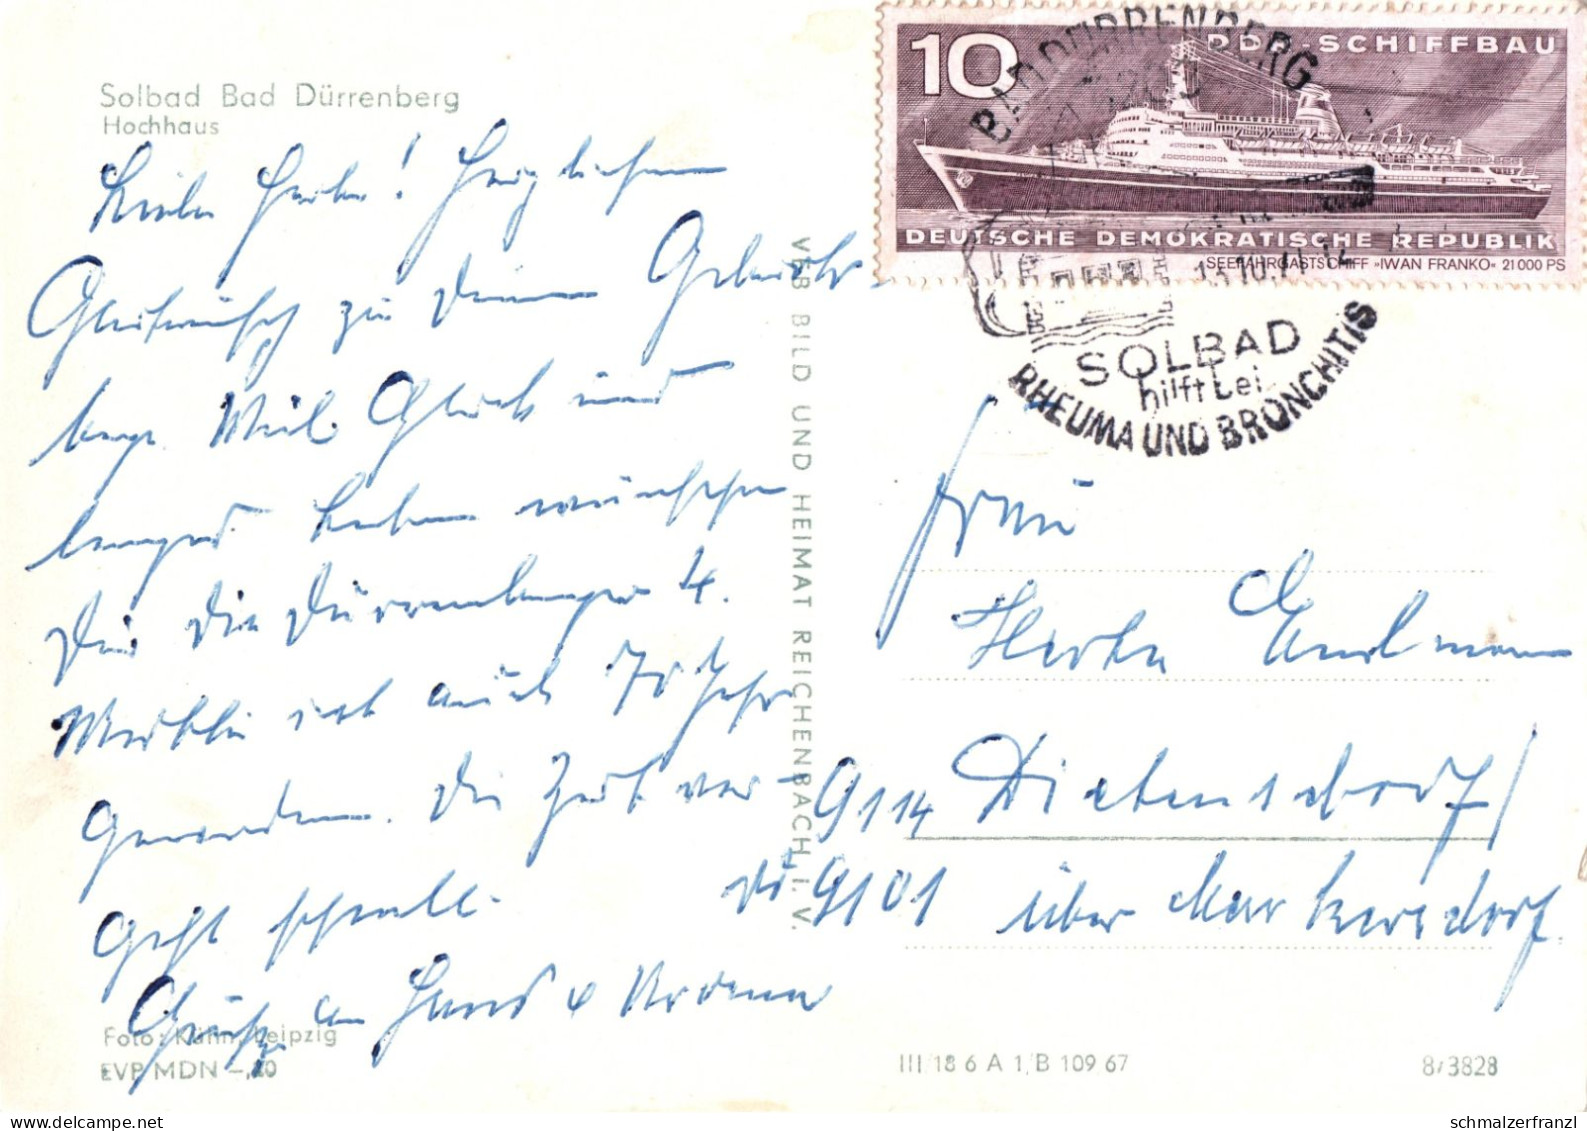 Solbad Bad Dürrenberg
Hochhaus
Liebe Herta! Herzlichen
Glückwunsch zu Deinem Geburts
tage. Viel Glück und
langes Leben wünschen
Dir die Dürrenberger 4.
auch 70 Jahre
geworden. Die Zeit ver-
geht schnell.
Grüße an Hans u
VEB BILD UND HEIMAT REICHENBACH I. V.
Foto: Kühn, Leipzig
EVP MDN –,20
10
DDR-SCHIFFBAU
DEUTSCHE DEMOKRATISCHE REPUBLIK
SEEFAHRGASTSCHIFF »IWAN FRANKO« 21000 PS
BAD DÜRRENBERG
SOLBAD
hilft bei
RHEUMA UND BRONCHITIS
Frau
Herta
9114 Diethensdorf/
9101 über Markersdorf.
III/18 6 A 1/B 109 67
8/3828